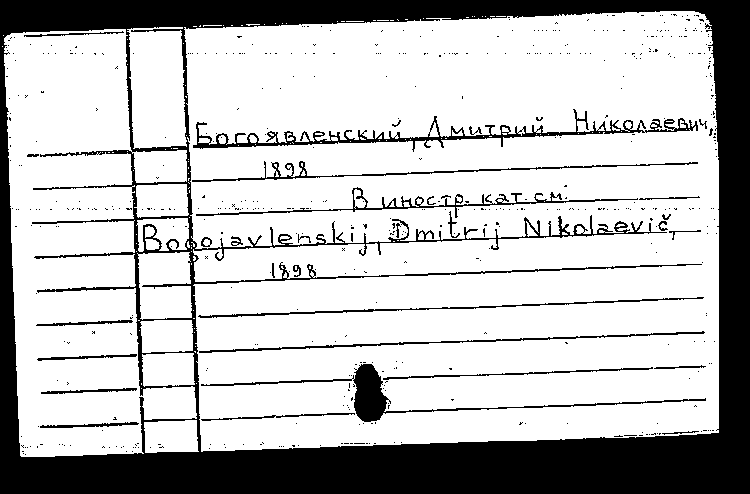 Богоявленский, Дмитрий Николаевич,
1898
В иностр. кат. см.
Bogojavlenskij, Dmitrij Nikolaevič,
1898